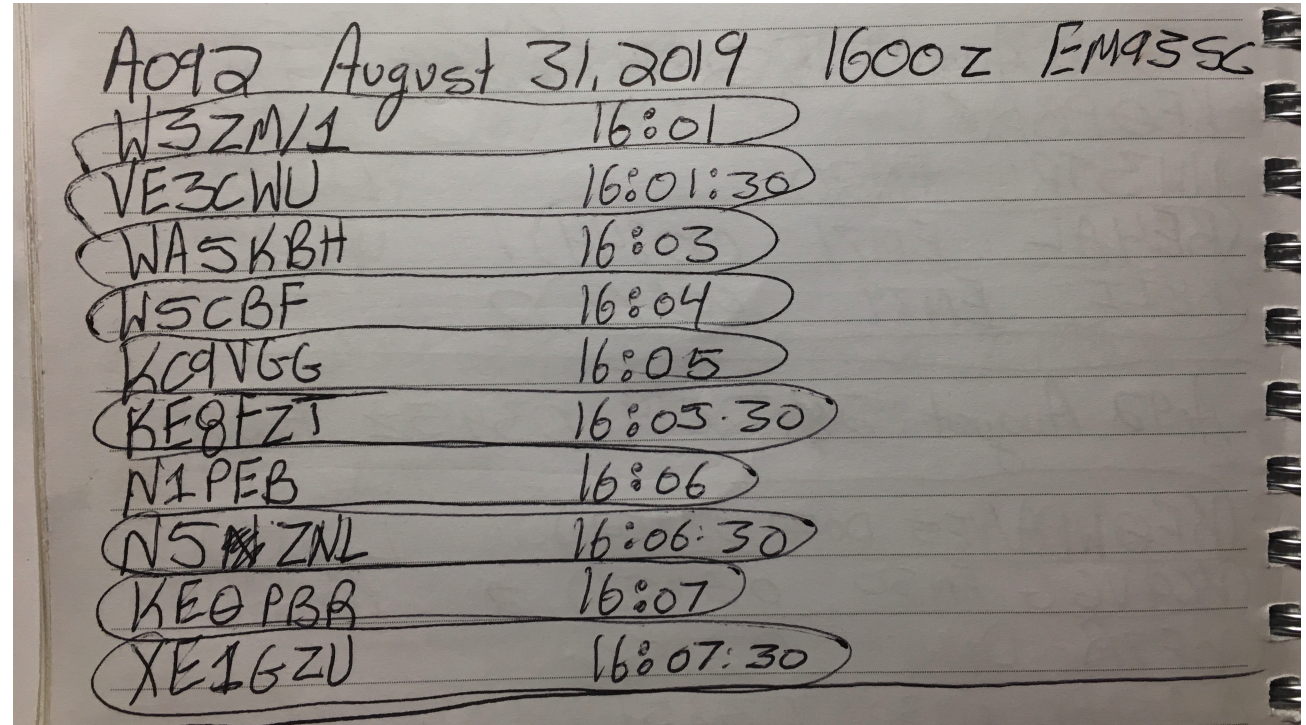 AO92 August 31, 2019 1600z EM93sc
W3ZM/1 16:01
VE3CWU 16:01:30
WA5KBH 16:03
W5CBF 16:04
KC9VGG 16:05
KE8FZT 16:05:30
N1PEB 16:06
N5 ZNL 16:06:30
KEØPBR 16:07
XE1GZU 16:07:30